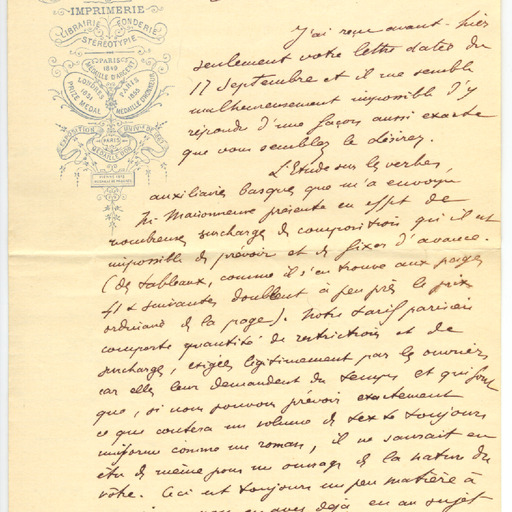 IMPRIMERIE
LIBRAIRIE FONDERIE
STÉRÉOTYPIE
PARIS
1849
MÉDAILLE D'ARGENT
LONDRES
1851
PRIZE MEDAL
PARIS
MÉDAILLE D'HONNEUR
EXPOSITION
PARIS
J'ai reçu avant-hier
seulement votre lettre datée du
17 Septembre et il me semble
malheureusement impossible d'y
répondre d'une façon aussi exacte
que vous semblez le désirer.
L'Étude sur les verbes
auxiliaires basques que m'a envoyé
M. Maisonneuve présente en effet de
nombreuses surcharges de composition qu'il est
impossible de prévoir et de fixer d'avance.
(des tableaux, comme il s'en trouve aux pages
41 & suivantes doublent à peu près le prix
ordinaire de la page). Notre tarif parisien
comporte quantité de restrictions et de
surcharges, exigées légitimement par les ouvriers
car elles leur demandent du temps et qui font
que, si nous pouvons prévoir exactement
ce que coûtera un volume de texte toujours
uniforme comme un roman, il ne saurait en
être de même pour un ouvrage de la nature du
vôtre. Ceci est toujours un peu matière à
nous en avez déjà eu au sujet